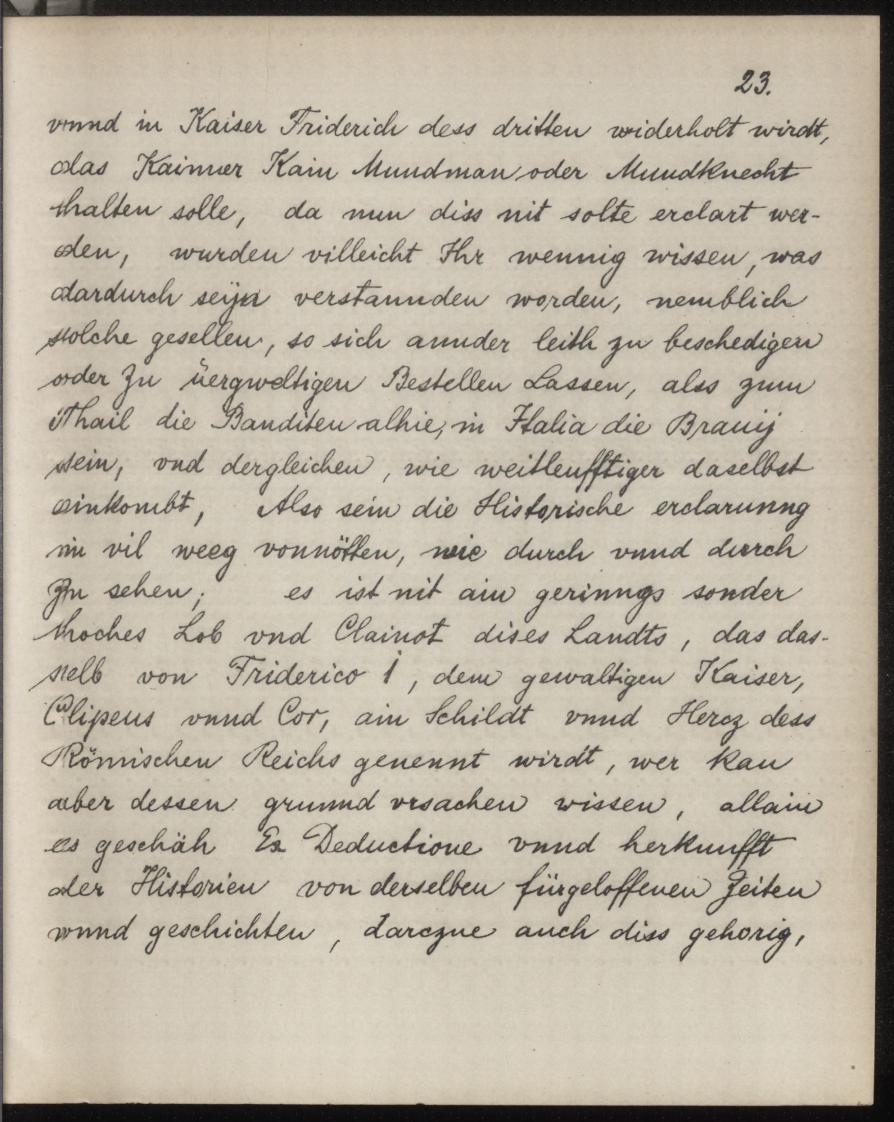 23.
vnnd in Kaiser Friderich dess dritten widerholt wirdt,
das Kainner Kain Mundman oder Mundknecht
halten solle, da nun diss nit solte erclart wer-
den, wurden villeicht Ihr wennig wissen, was
dardurch seÿn verstannden worden, nemblich
solche gesellen, so sich annder leith zu beschedigen
oder Zu üergweltigen Bestellen Lassen, alss zum
Thail die Banditen alhie, in Italia die Brauij
sein, vnd dergleichen, wie weitleufftiger daselbst
einkombt, Also sein die Historische erclarunng
in vil weeg vonnötten, wie durch vnnd durch
Zu sehen; es ist nit ain gerinngs sonder
hoches Lob vnd Clainot dises Landts, das das-
selb von Friderico I, dem gewaltigen Kaiser,
Clipeus vnnd Cor, ain Schildt vnnd Hercz dess
Römischen Reichs genennt wirdt, wer kan
aber dessen grunnd vrsachen wissen, allain
es geschäh Ex Deductione vnnd herkunfft
der Historien von derselben fürgeloffenen Zeiten
vnnd geschichten, darczue auch diss gehorig,